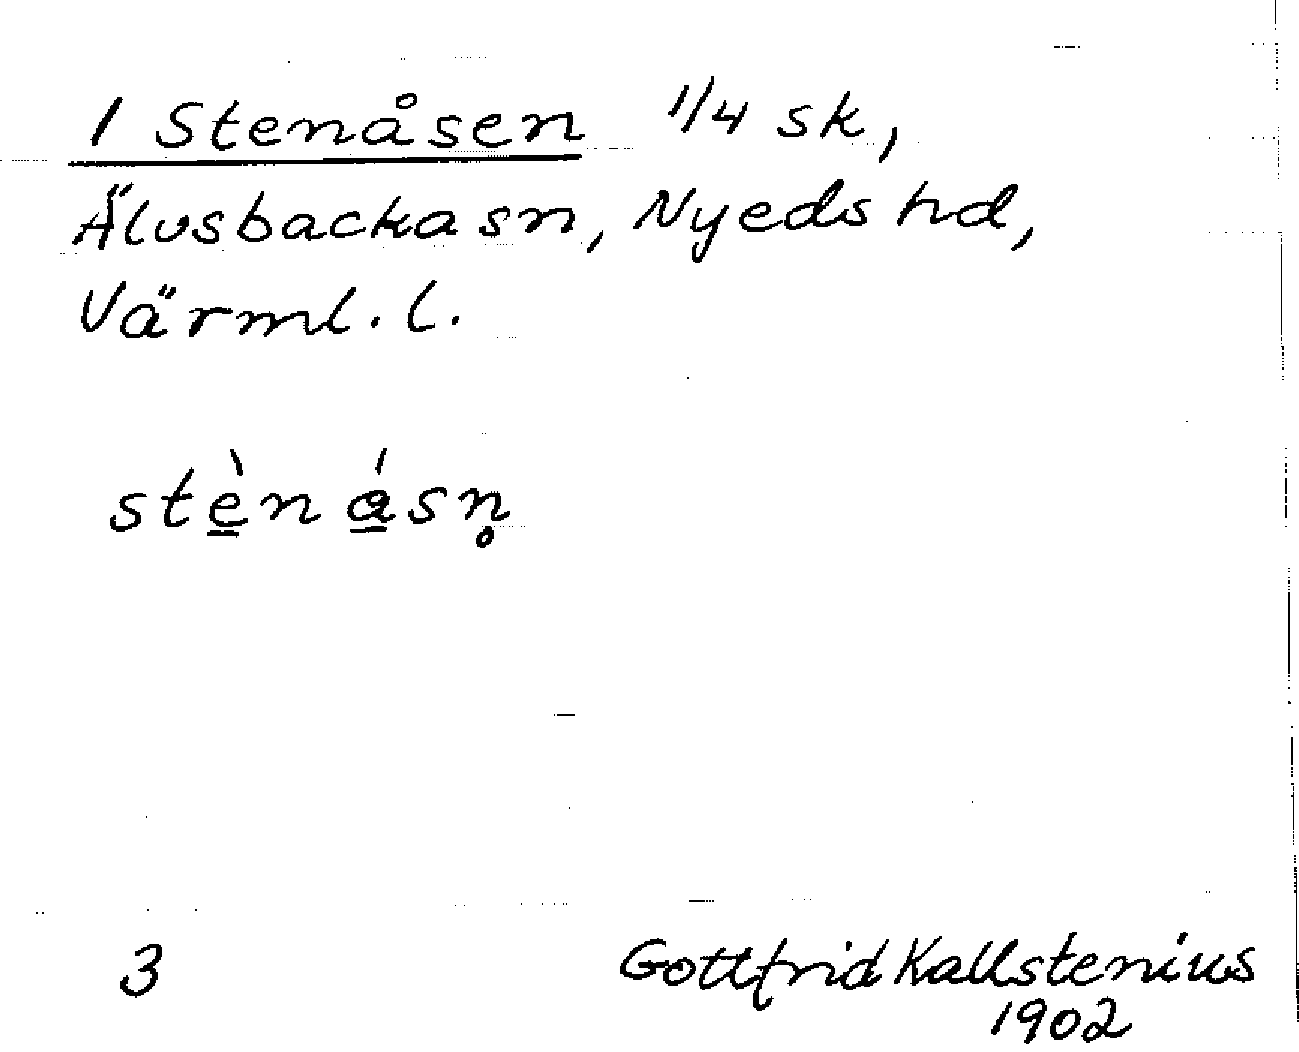 1 Stenåsen 1/4 sk,
Älvsbacka sn, Nyeds hd,
Värml. l.
stè̠n á̠sn̥
3
Gottfrid Kallstenius
1902